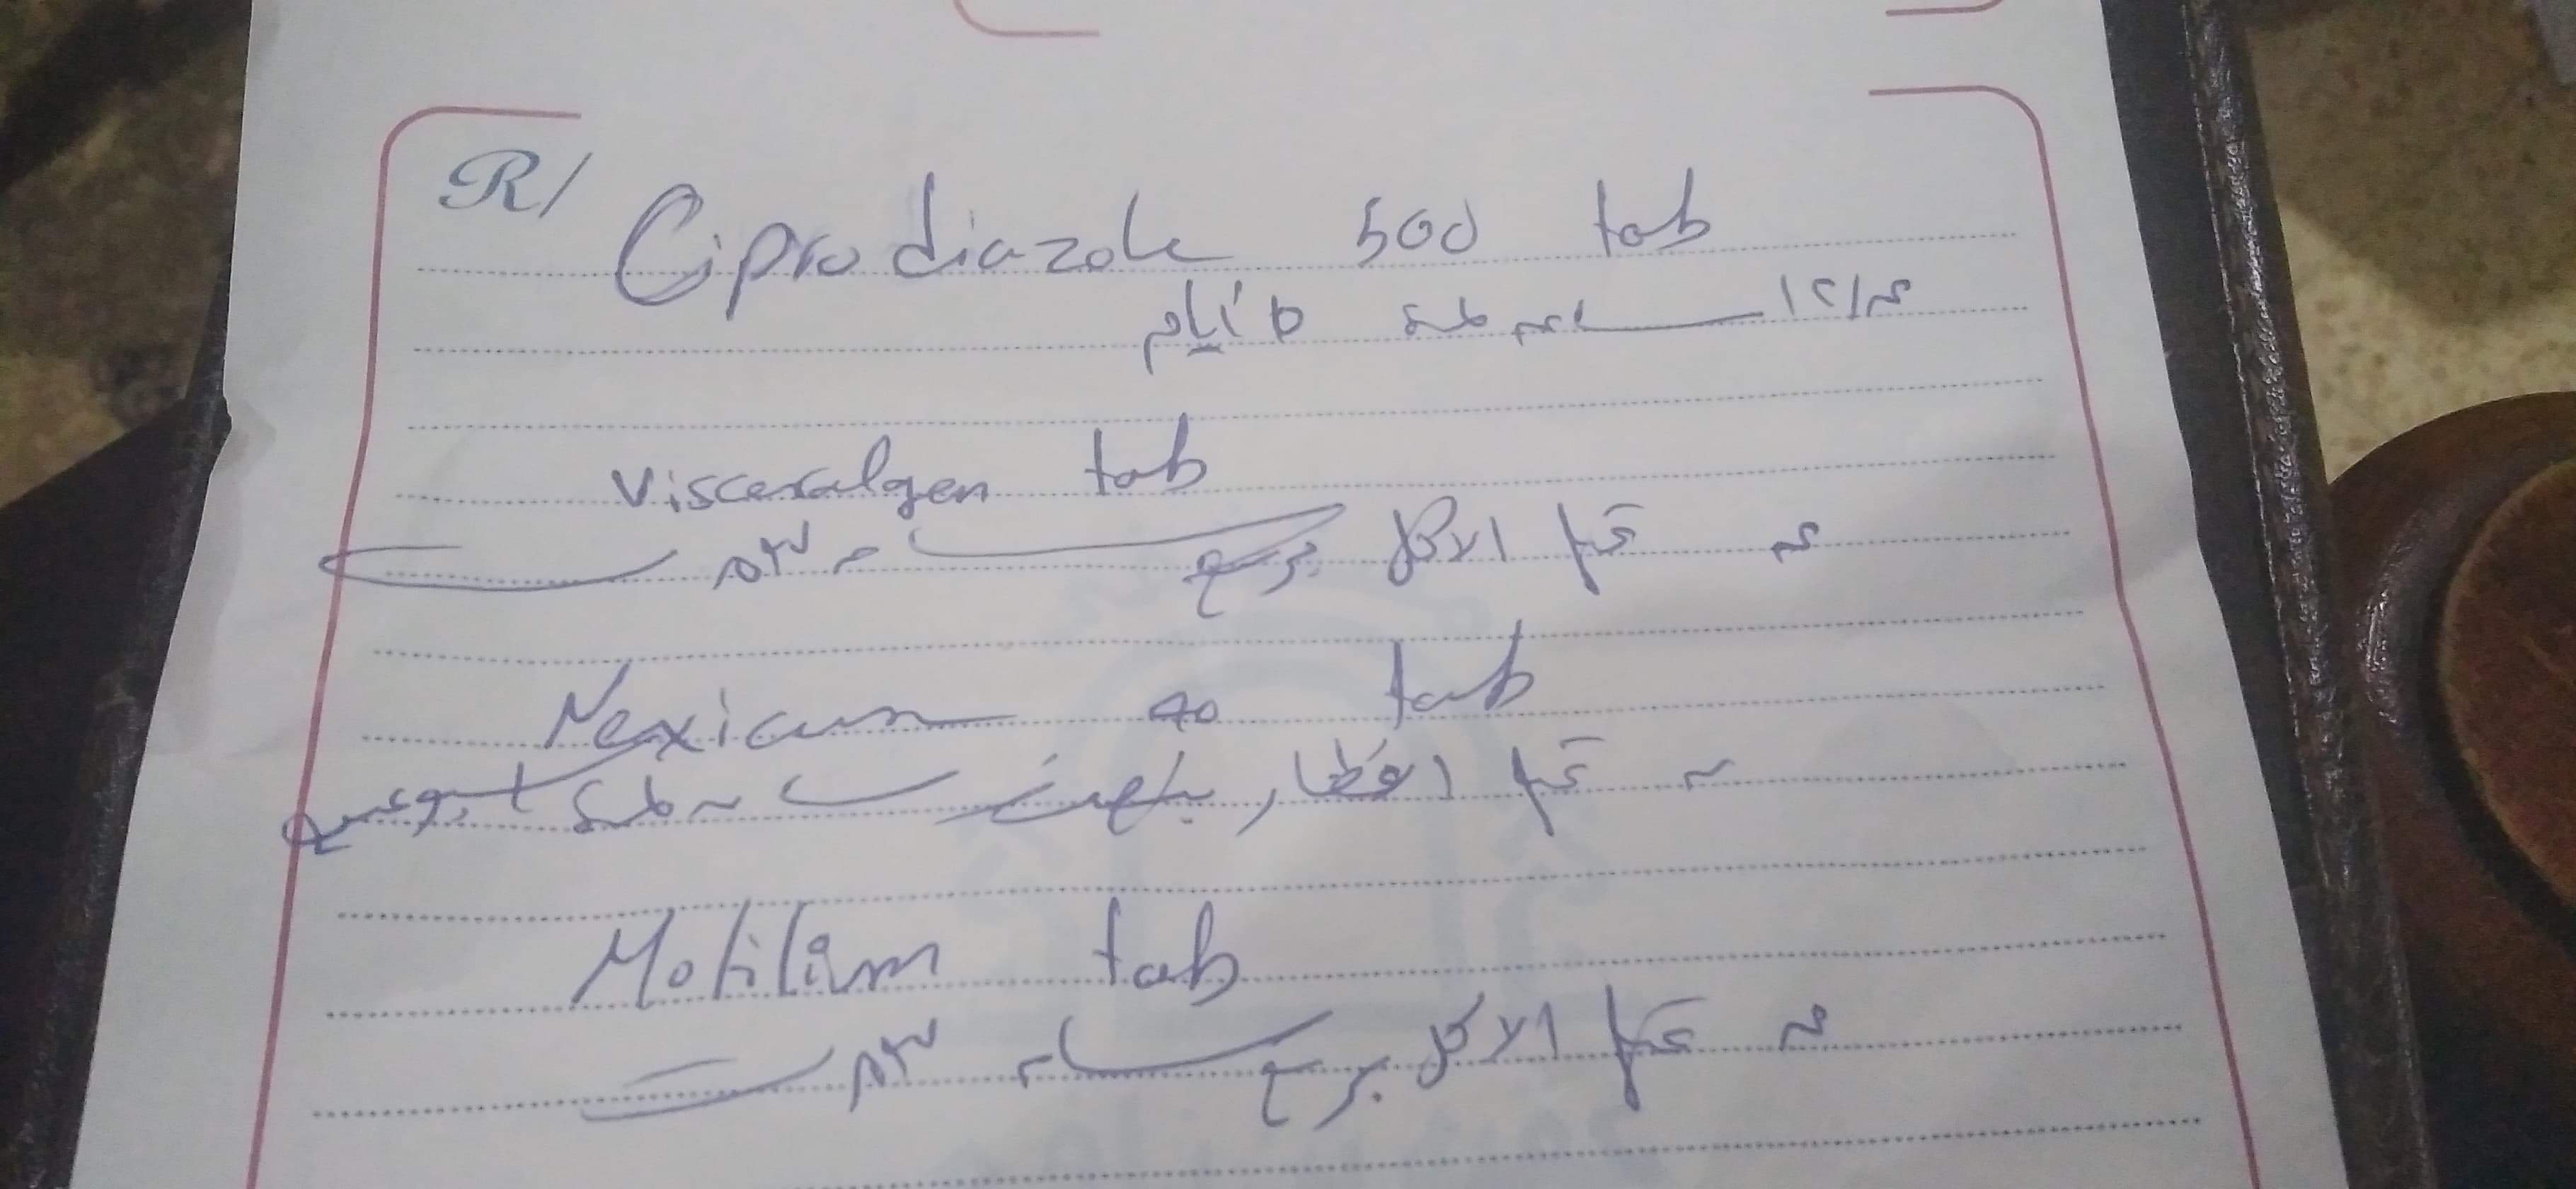 R/
Ciprodiazole 500 tab
١٢/س ساعه لمدة ٥ أيام
Visceralgen tab
قبل الاكل بربع ساعه
Nexicure 40 tab
قبل الافطار بنصف ساعه لمدة اسبوعين
Motilium tab
قبل الاكل بربع ساعه